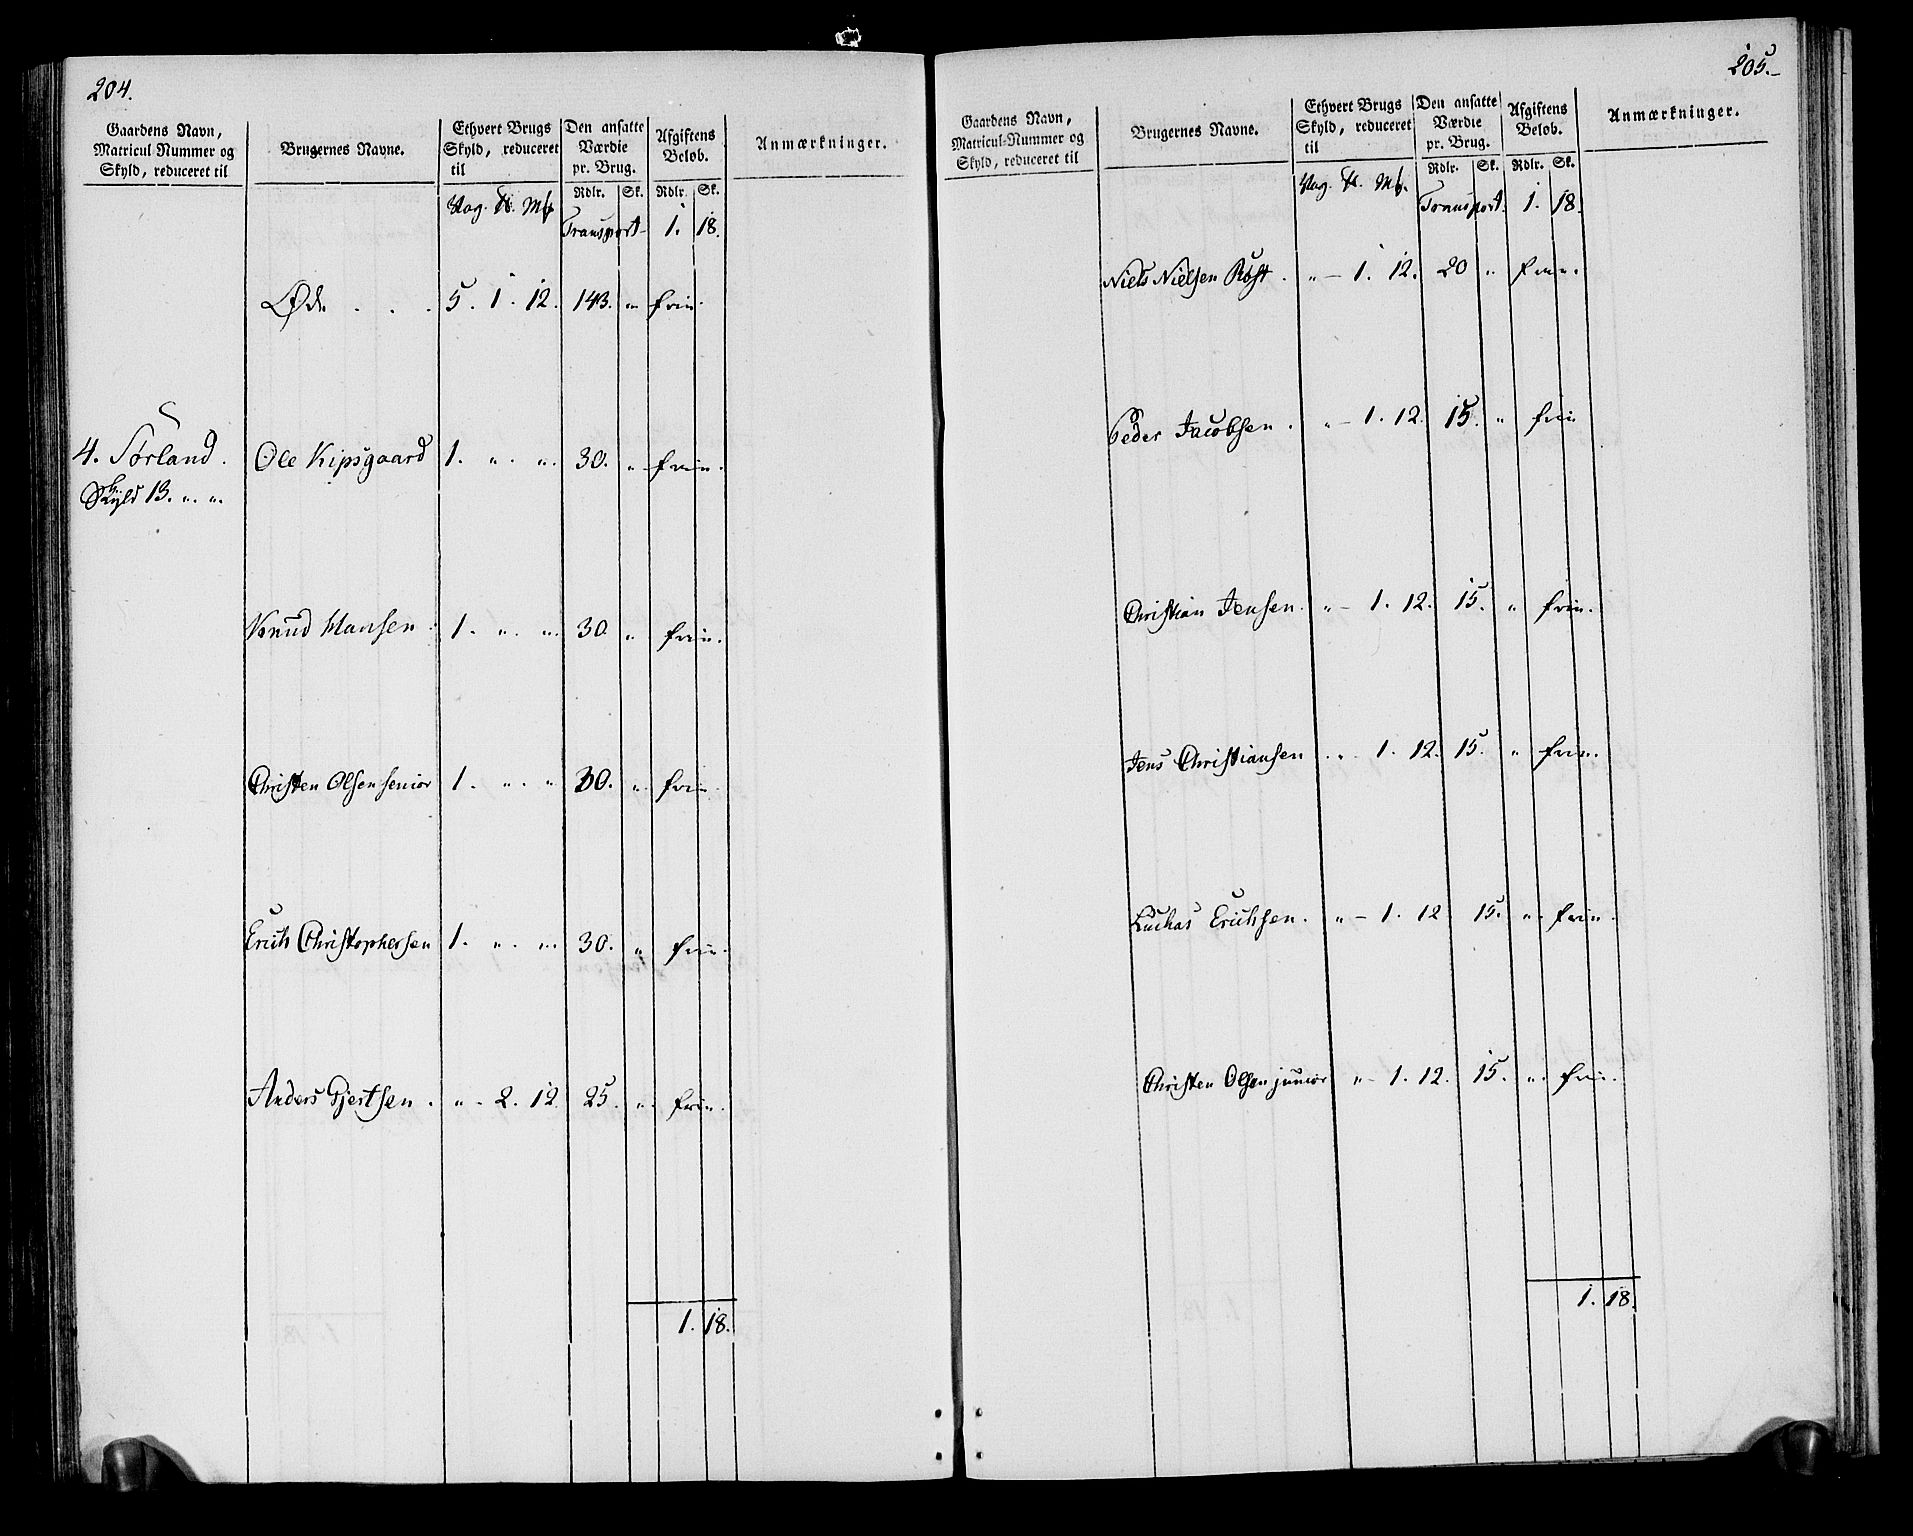 204.
Gaardens Navn, Matricul Nummer og Skyld, reduceret til
Brugernes Navne.
Ethvert Brugs Skyld, reduceret til
Den ansatte Værdie pr. Brug.
Afgiftens Beløb.
Anmærkninger.
Rdlr. Sk. Rdlr. Sk.
Vog. ℔. Mk.
Transport 1. 18.
Øde . . . 5. 1. 12. 143. " frie.
4. Sørland. Ole Kipsgaard 1. " " 30. " frie.
Skyld 13. " "
Knud Hansen. 1. " " 30. " frie.
Christen Olsen senior 1. " " 30. " frie.
Erich Christophersen 1. " " 30. " frie.
Anders Gjertsen. " 2. 12. 25. " frie.
1. 18.
205.
Gaardens Navn, Matricul-Nummer og Skyld, reduceret til
Brugernes Navne.
Ethvert Brugs Skyld, reduceret til
Den ansatte Værdie pr. Brug.
Afgiftens Beløb.
Anmærkninger.
Rdlr. Sk. Rdlr. Sk.
Vog. ℔. Mk.
Transport. 1. 18.
Niels Nielsen Røst. " 1. 12. 20 " frie.
Peder Jacobsen. " 1. 12. 15. " frie
Christian Jensen. " 1. 12. 15. " frie.
Jens Christiansen " 1. 12. 15. " frie.
Luchas Erichsen. " 1. 12 15. " frie.
Christen Olsen junior " 1. 12. 15. " frie.
1. 18.